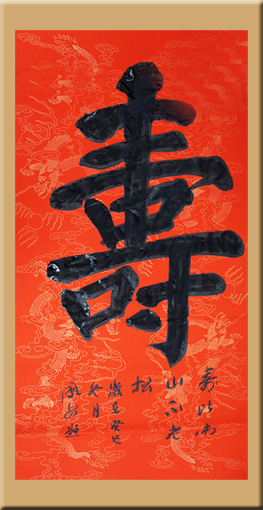 壽
寿比南
山不老
松
歲在癸巳
冬月